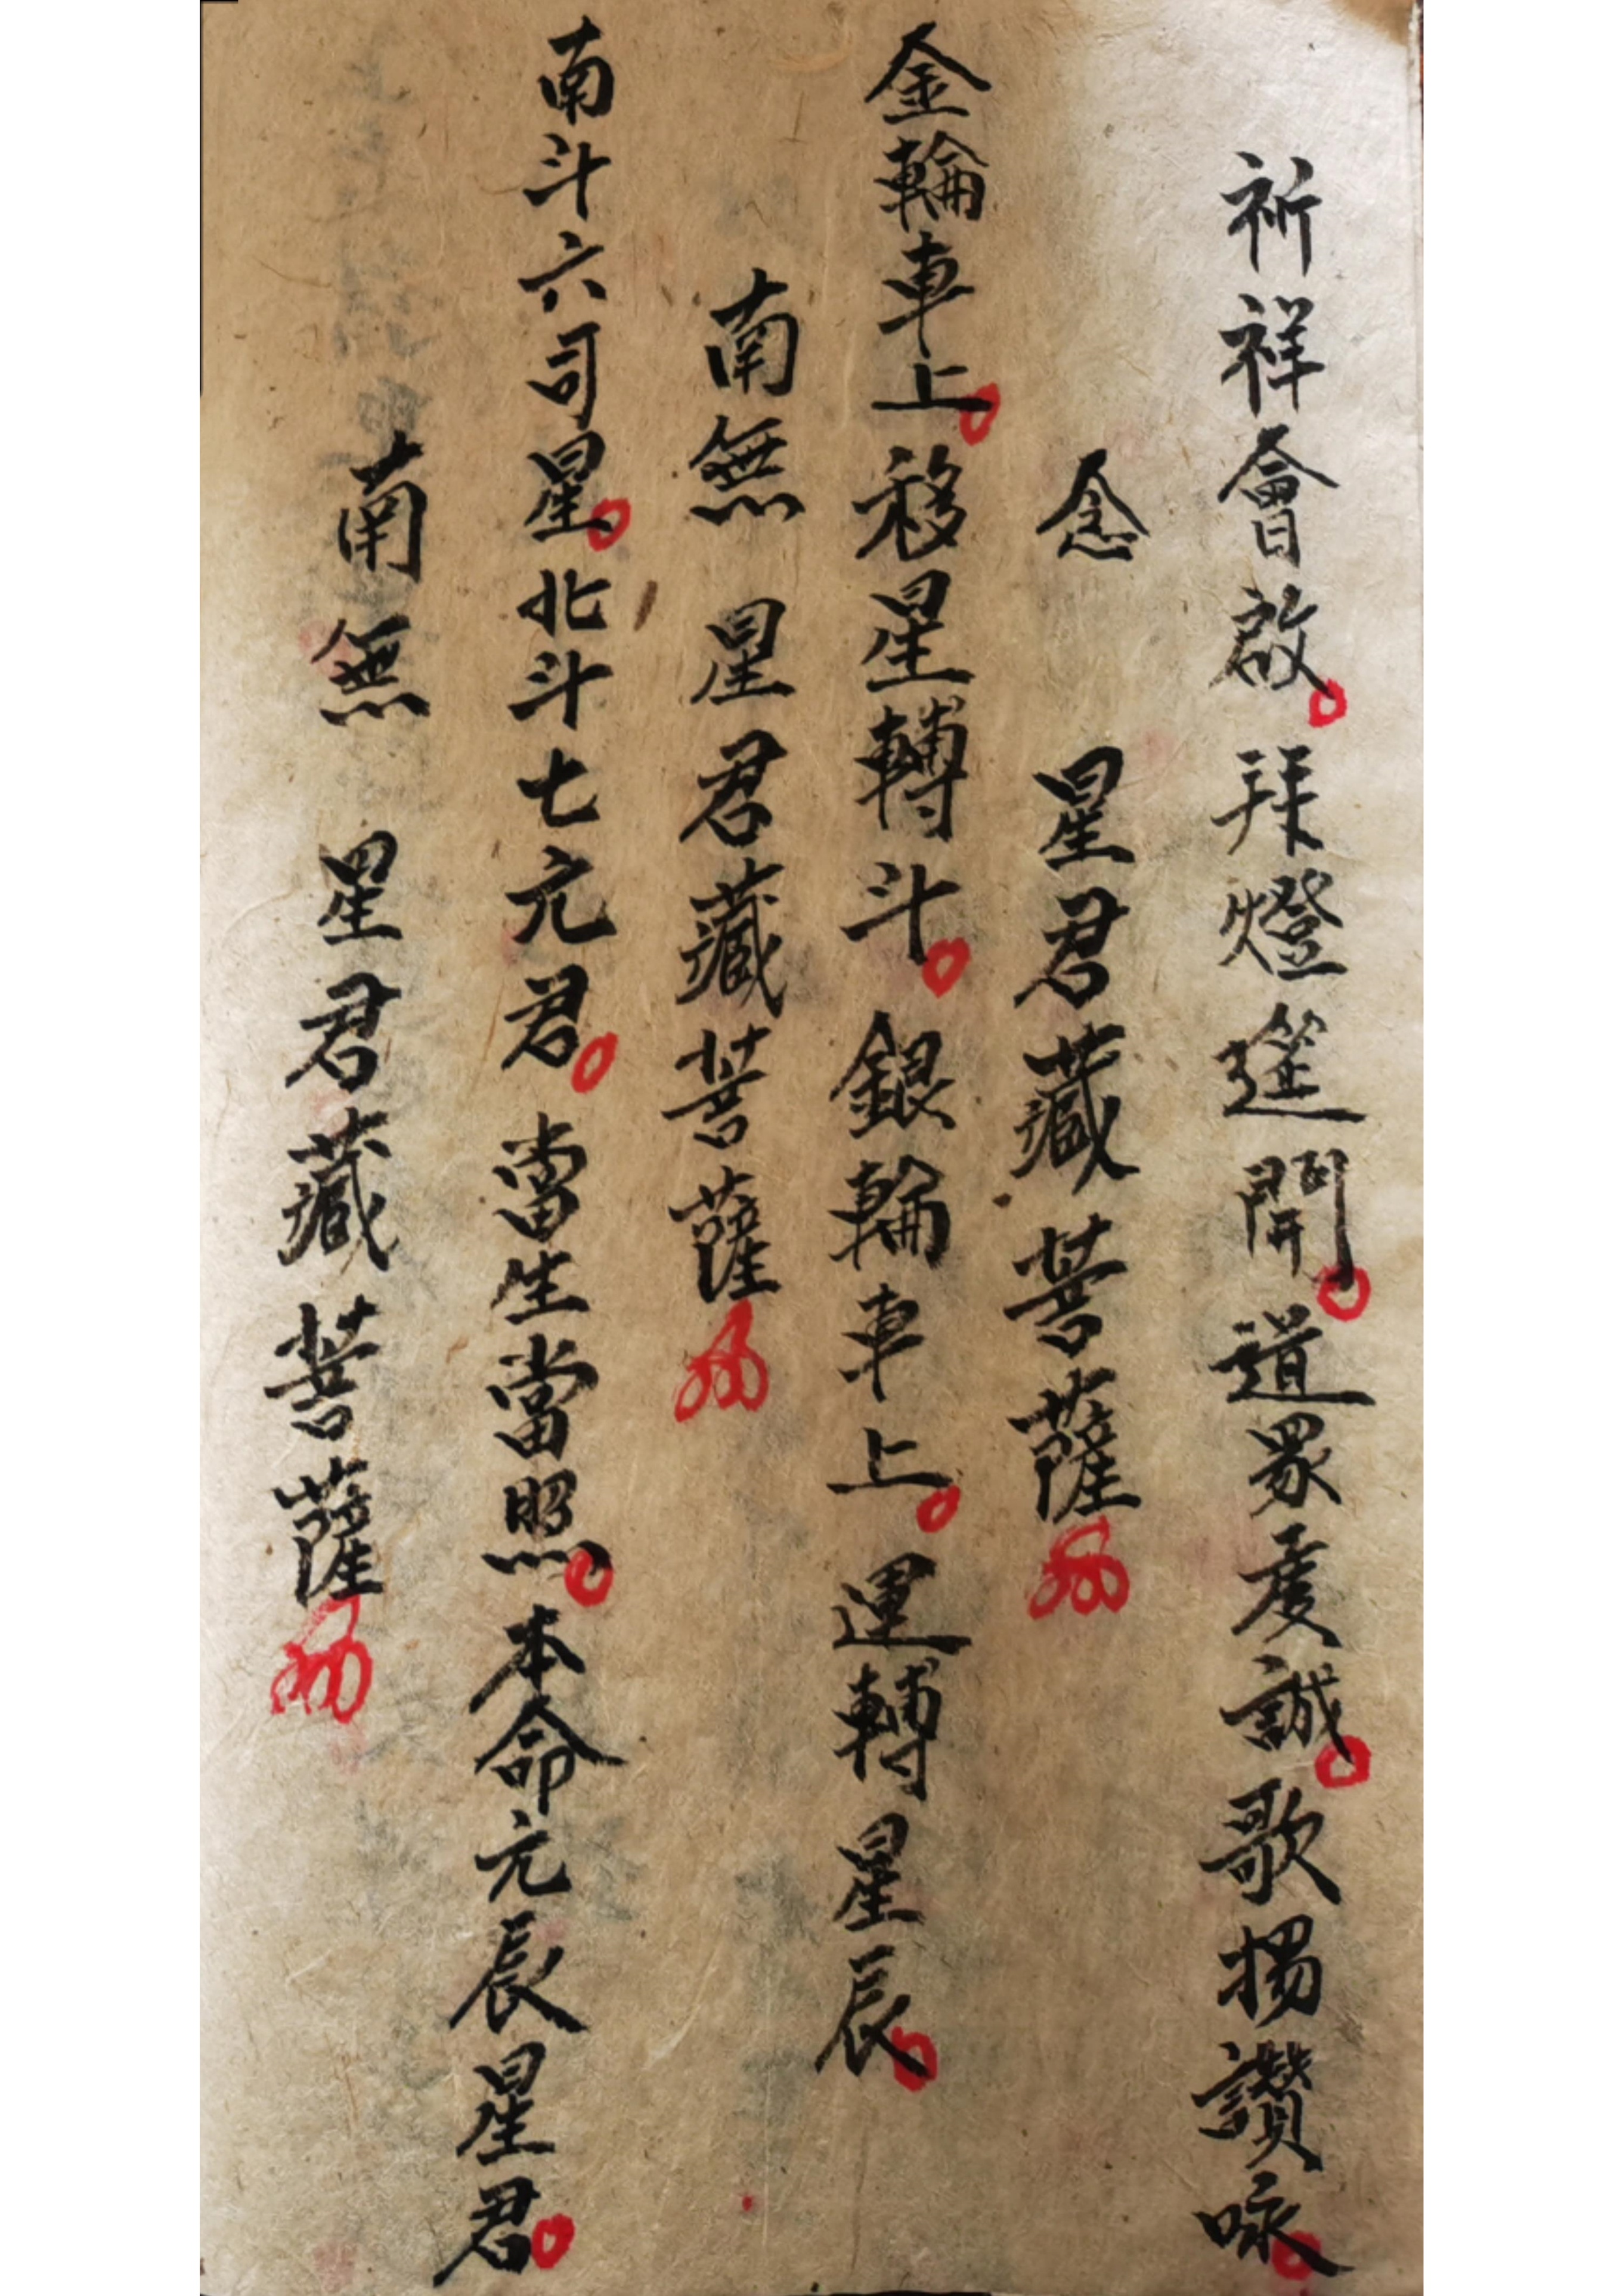 祈祥會啟。拜燈筵開。道眾虔誠。歌揚讚咏。
念 星君藏菩薩
金輪車上。移星轉斗。銀輪車上。運轉星辰。
南無 星君藏菩薩
南斗六司星。北斗七元君。當生當照。本命元辰星君。
南無 星君藏菩薩